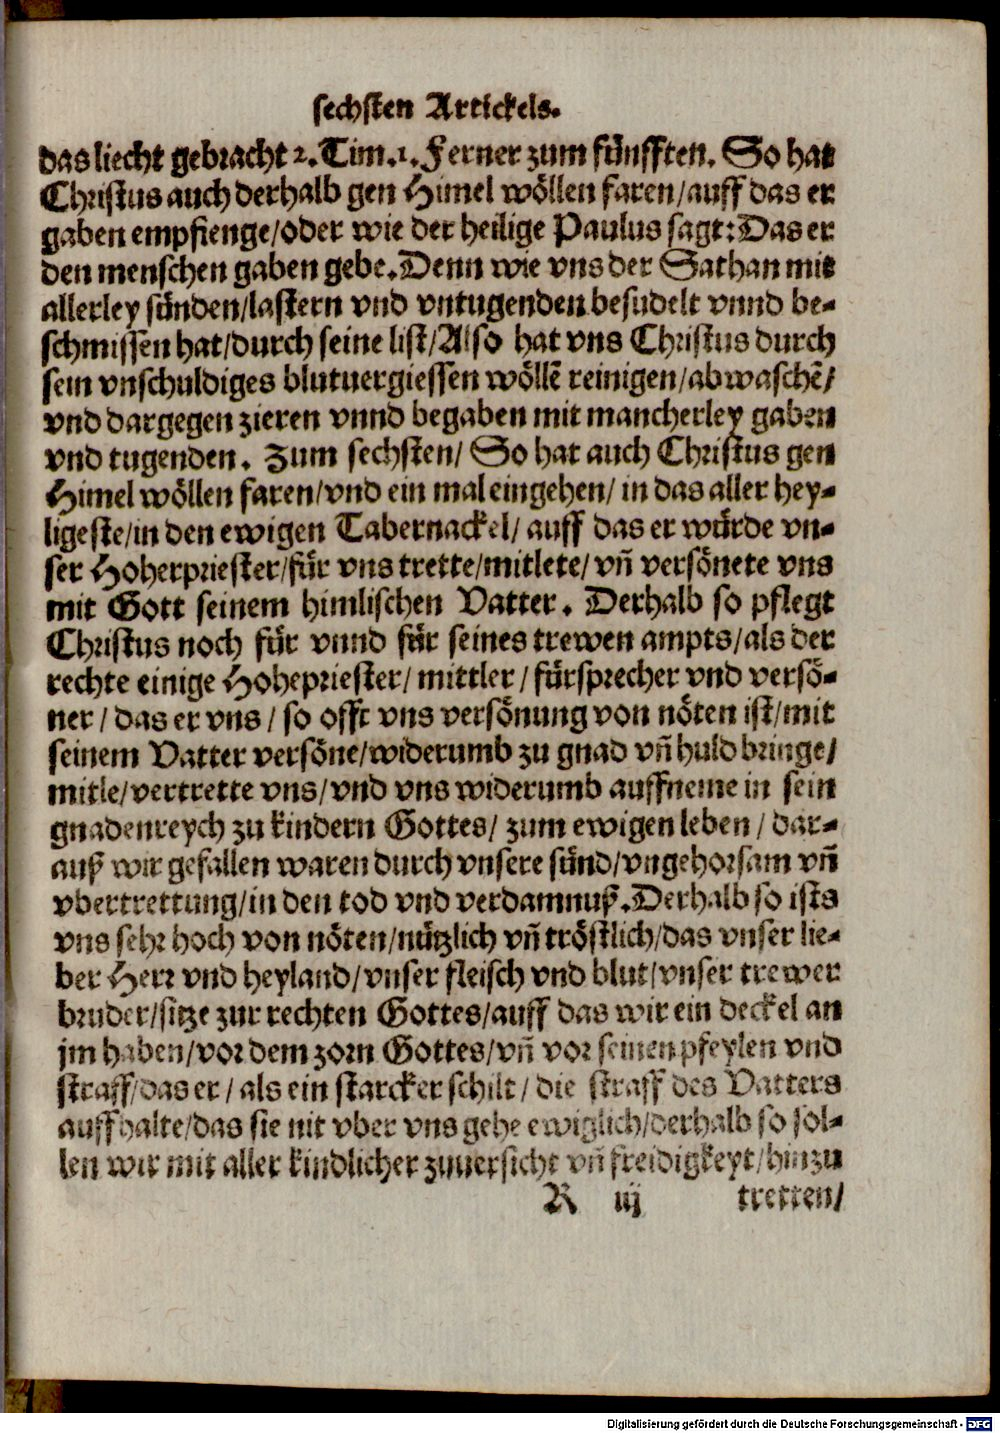 sechsten Artickels.
das liecht gebracht 2. Tim. 1. Ferner zum fünfften. So hat
Christus auch derhalb gen Himel wöllen faren/auff das er
gaben empfienge/oder wie der heilige Paulus sagt: Das er
den menschen gaben gebe. Denn wie vns der Sathan mit
allerley sünden/lastern vnd vntugenden besudelt vnnd be-
schmissen hat/durch seine list/Also hat vns Christus durch
sein vnschuldiges blutuergiessen wöllē reinigen/abwaschē/
vnd dargegen zieren vnnd begaben mit mancherley gaben
vnd tugenden. Zum sechsten/ So hat auch Christus gen
Himel wöllen faren/vnd ein mal eingehen/ in das aller hey-
ligeste/in den ewigen Tabernackel/ auff das er würde vn-
ser Hoherpriester/für vns trette/mitlete/ vñ versönete vns
mit Gott seinem himlischen Vatter. Derhalb so pflegt
Christus noch für vnnd für seines trewen ampts/als der
rechte einige Hohepriester/ mittler / fürsprecher vnd versö-
ner / das er vns / so offt vns versönung von nöten ist/mit
seinem Vatter versöne/widerumb zu gnad vñ huld bringe/
mitle/vertrette vns/vnd vns widerumb auffneme in sein
gnadenreych zu kindern Gottes/ zum ewigen leben / dar-
auß wir gefallen waren durch vnsere sünd/vngehorsam vñ
vbertrettung/in den tod vnd verdamnuß. Derhalb so ists
vns sehr hoch von nöten/nützlich vñ tröstlich/das vnser lie-
ber Herr vnd heyland/vnser fleisch vnd blut/vnser trewer
bruder/sitze zur rechten Gottes/auff das wir ein deckel an
jm haben/vor dem zorn Gottes/vñ vor seinen pfeylen vnd
straff/das er / als ein starcker schilt / die straff des Vatters
auffhalte/das sie nit vber vns gehe ewiglich/derhalb so sol-
len wir mit aller kindlicher zuuersicht vñ freidigkeyt/hinzu
R iij tretten/
Digitalisierung gefördert durch die Deutsche Forschungsgemeinschaft - DFG